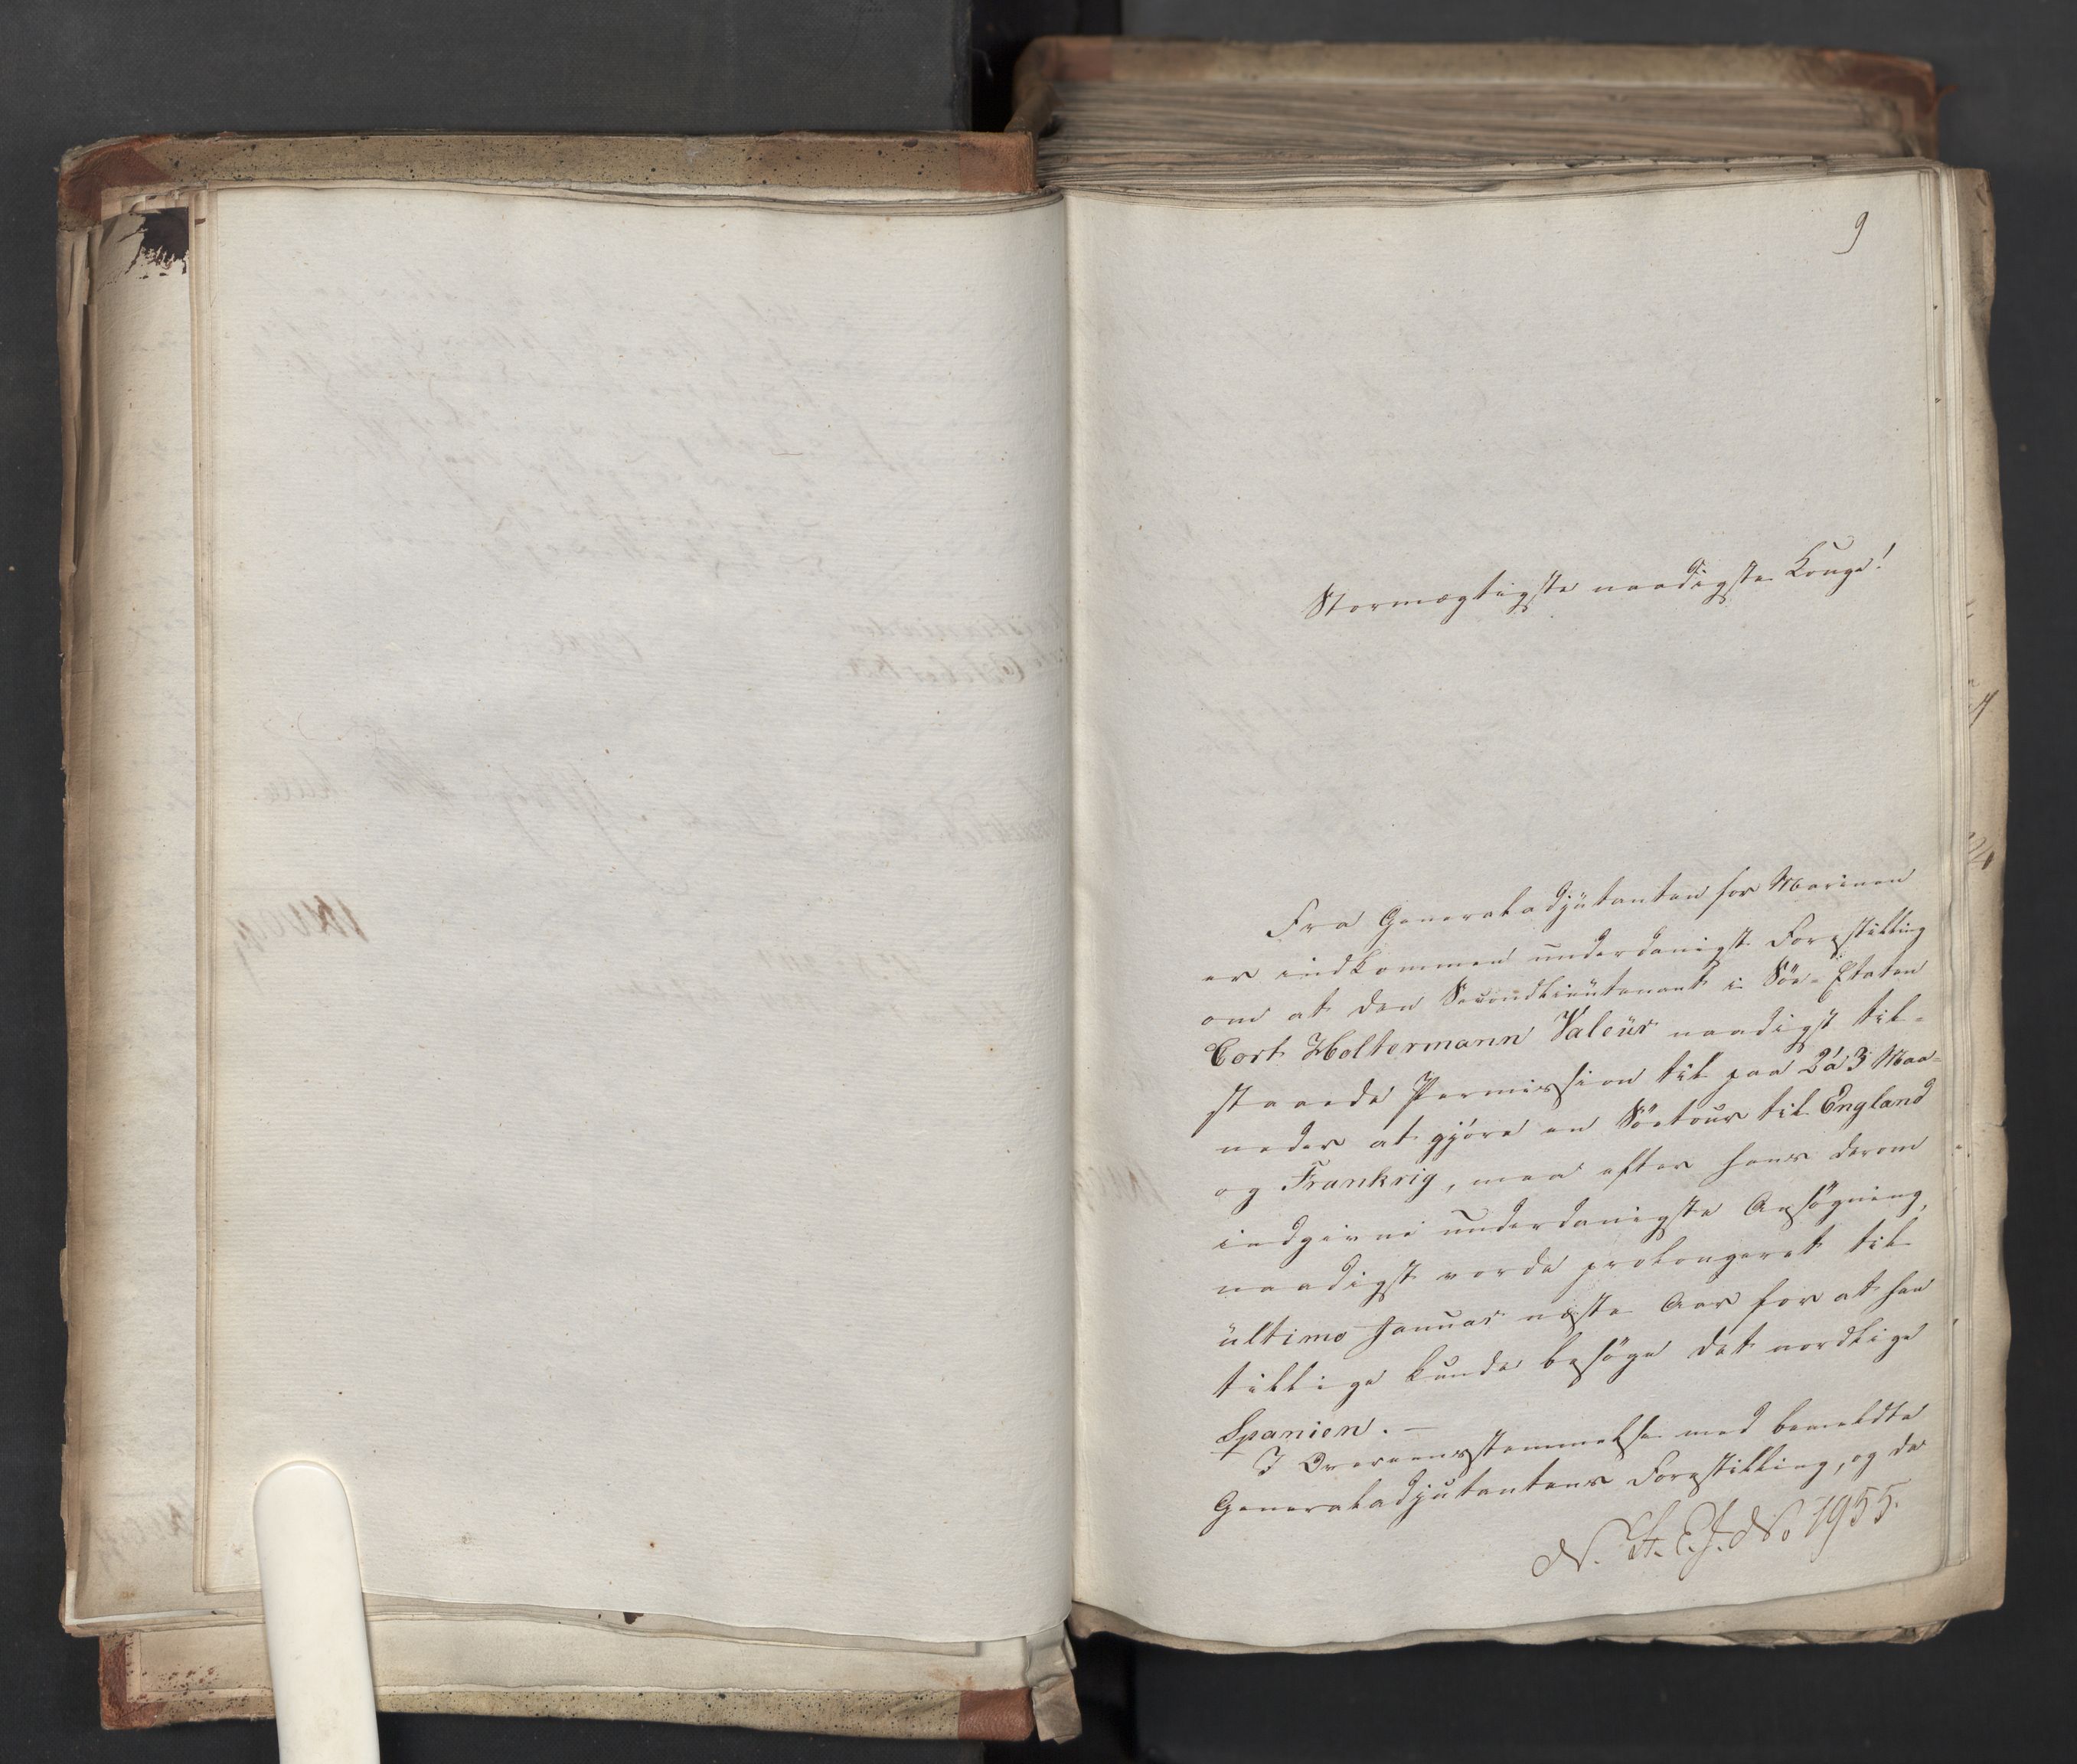 9
Stormægtigste naadigste Konge!
Fra Generaladjütanten for Marinen
er indkommen underdanigst Forestilling
om at den Secondlieütenant i Söe-Etaten
Cort Holtermann Valeür naadigst til-
staaede Permission til paa 2 á 3 Maa-
neder at gjöre en Söetour til England
og Frankrig, maa efter hans derom
indgivne underdanigste Ansögning,
naadigst vorde prolongeret til
ültimo Januar næste Aar for at han
tillige kunde besöge det nordlige
Spanien. —
I Overeensstemmelse med bemeldte
Generaladjutantens Forestilling, og da
N. St. E. J. No 1955.